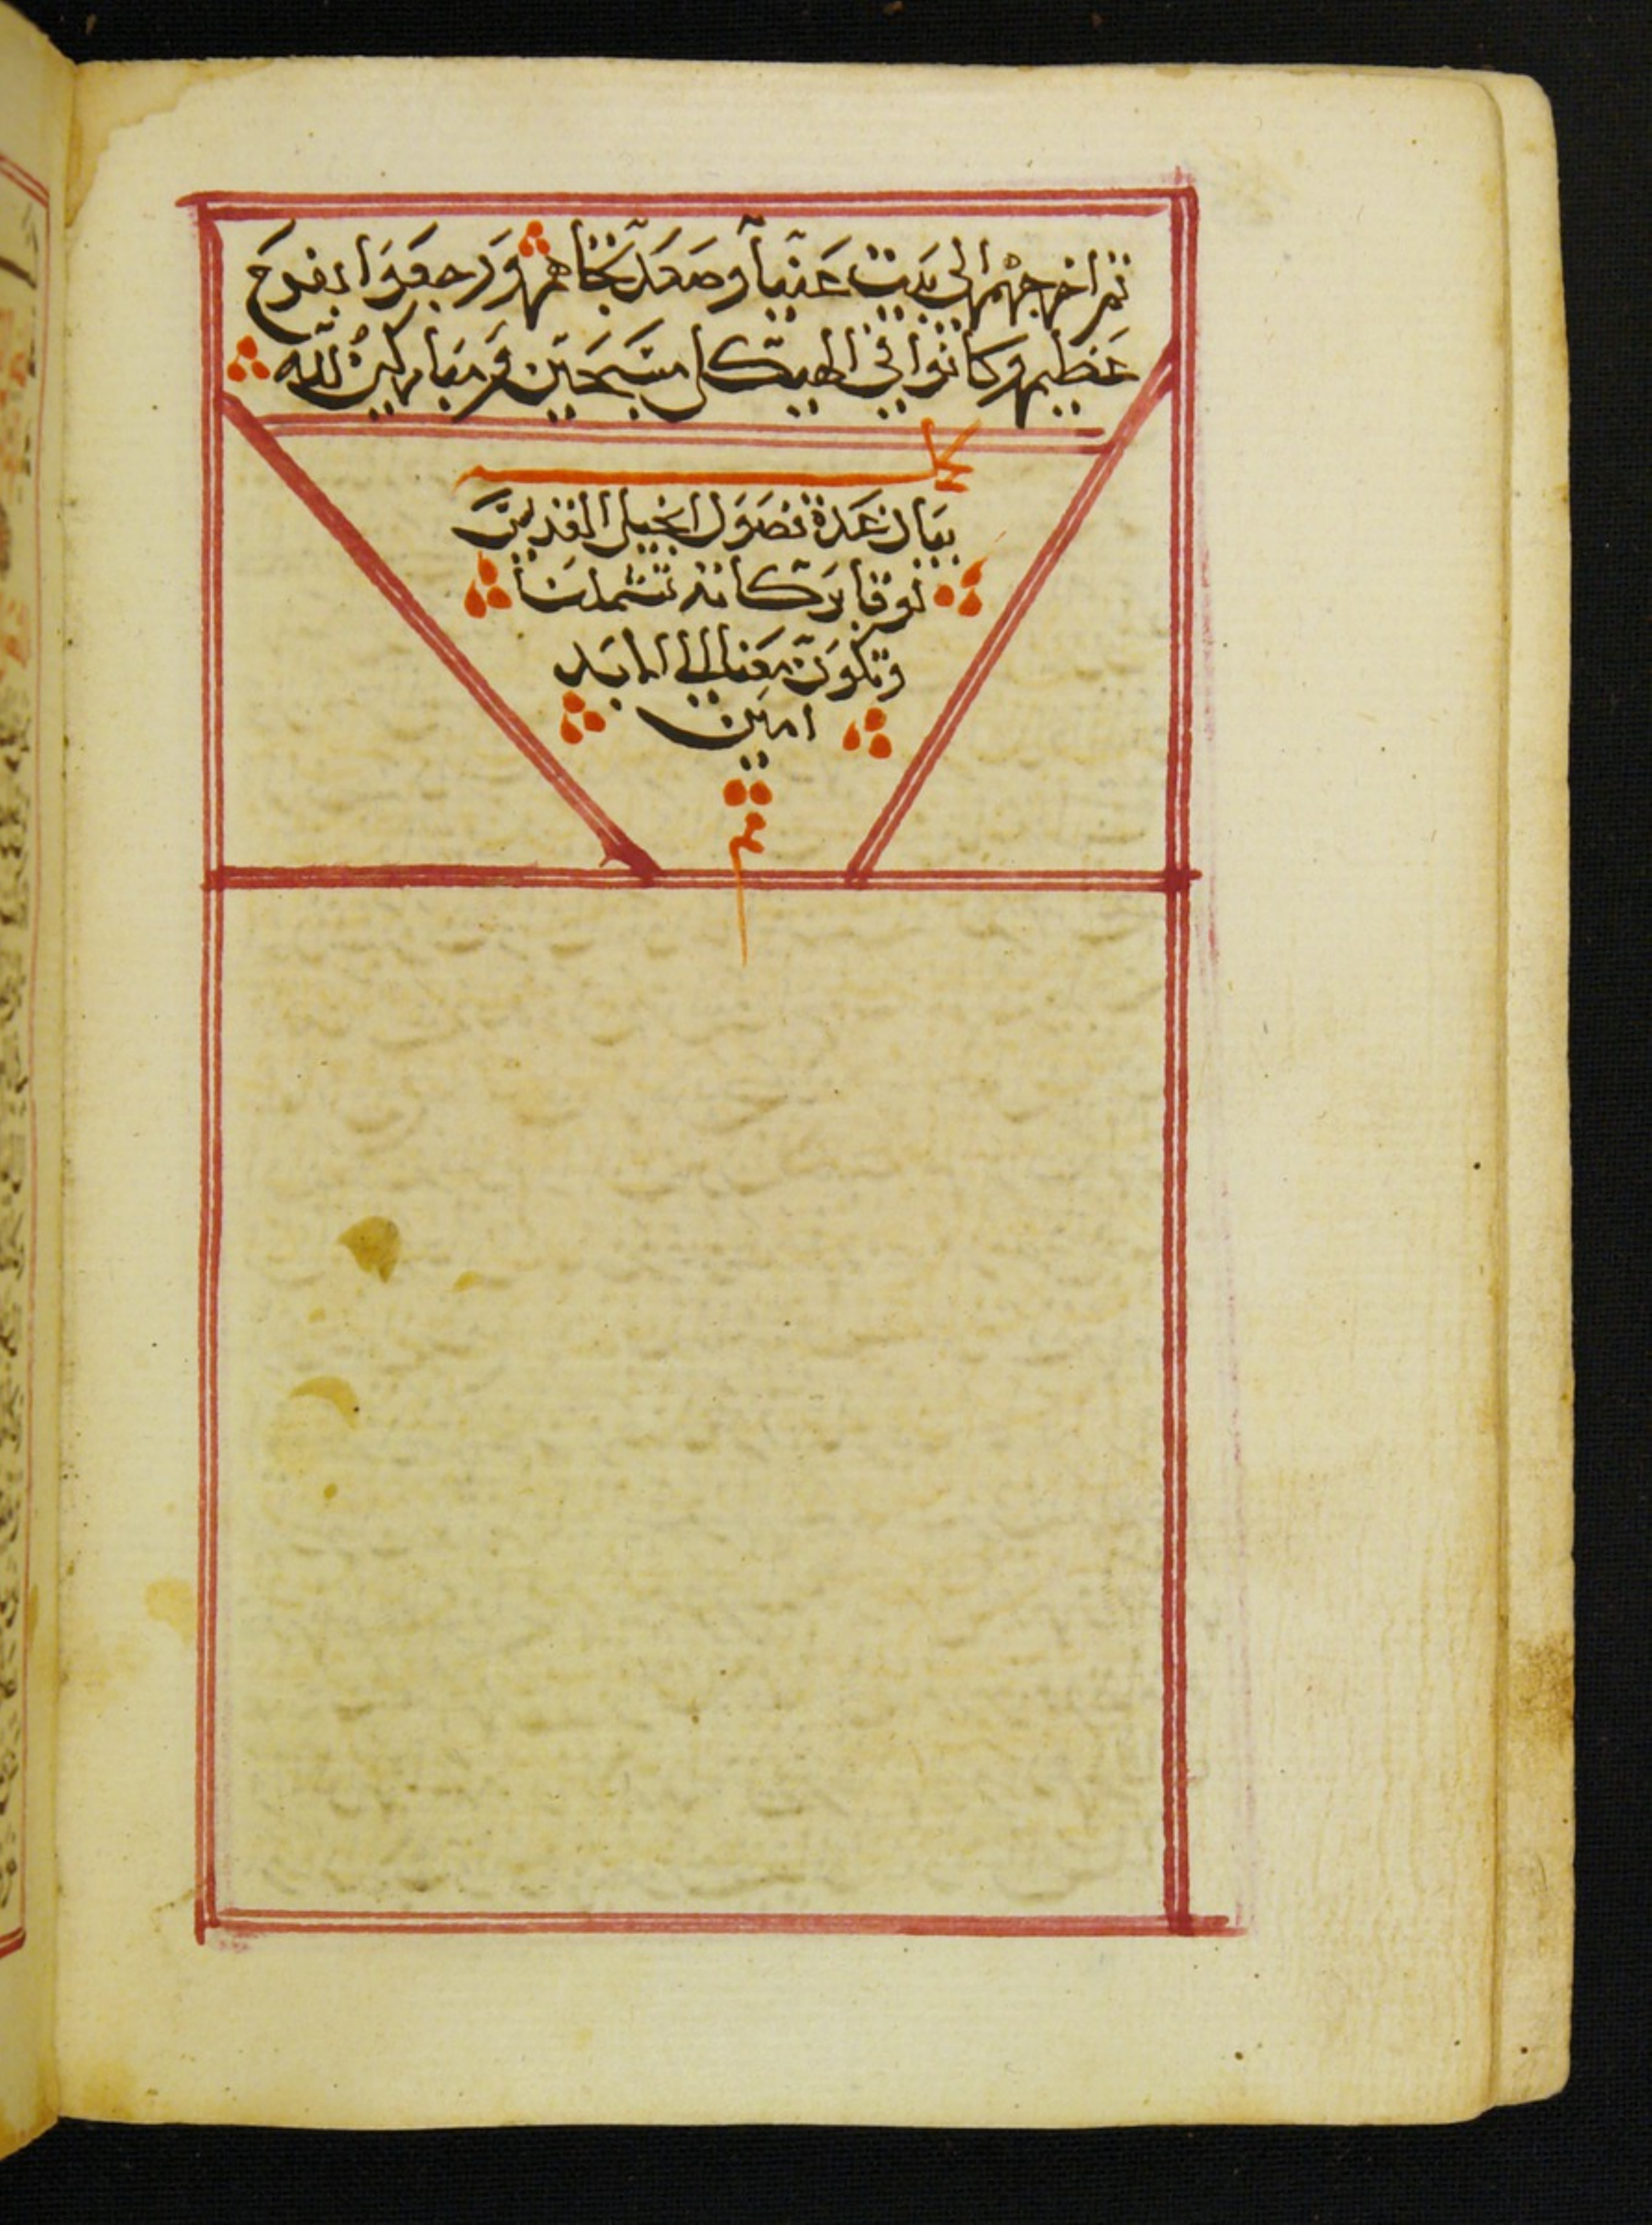 ثم اخرجهم الي بيت عنيا وصعد تجاههم ورجعوا بفرح
عظيم وكانوا في الهيكل مسبحين ومباركين لله
كمل
بيان عدة فصول انجيل القديس
لوقا بركاته تشملنا
وتكون معنا الي الابد
امين
تم